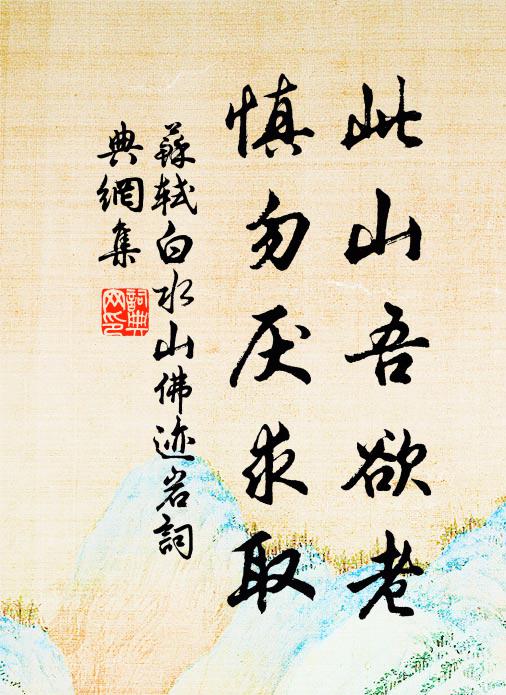 此山吾欲老
慎勿厌求取
蘇軾白水山佛迹岩詞
典網集
詞典
网印